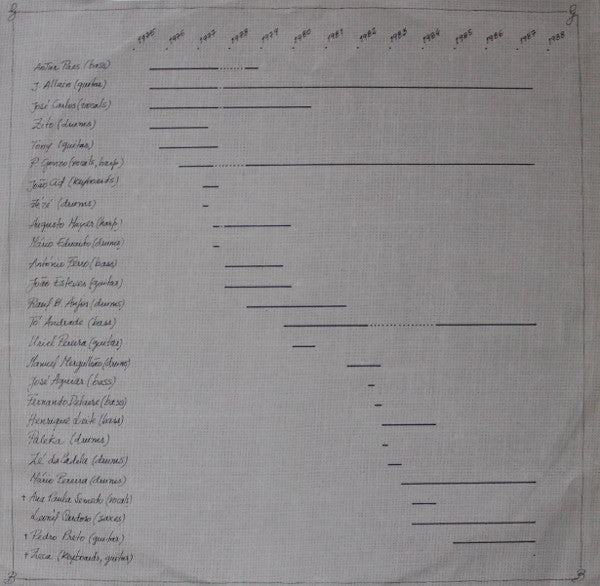 1975 1976 1977 1978 1979 1980 1981 1982 1983 1984 1985 1986 1987 1988
Antur Paes (bass)
J. Allain (guitar)
José Carlos (vocals)
Zito (drums)
Tomy (guitar)
P. Gonzo (vocals, harp)
João Cid (keyboards)
Zézé (drums)
Augusto Mayer (harp)
Mário Eduardo (drums)
António Ferro (bass)
João Esteves (guitar)
Raúl B. Anjos (drums)
Tó Andrade (bass)
Uriel Pereira (guitar)
Manuel Mergulhão (drums)
José Aguiar (bass)
Fernando Delaere (bass)
Henrique Leite (bass)
Paleka (drums)
Zé da Cadela (drums)
Mário Pereira (drums)
+ Ana Paula Semedo (vocals)
Leonil Cardoso (saxes)
+ Pedro Preto (guitar)
+ Zeca (keyboards, guitar)